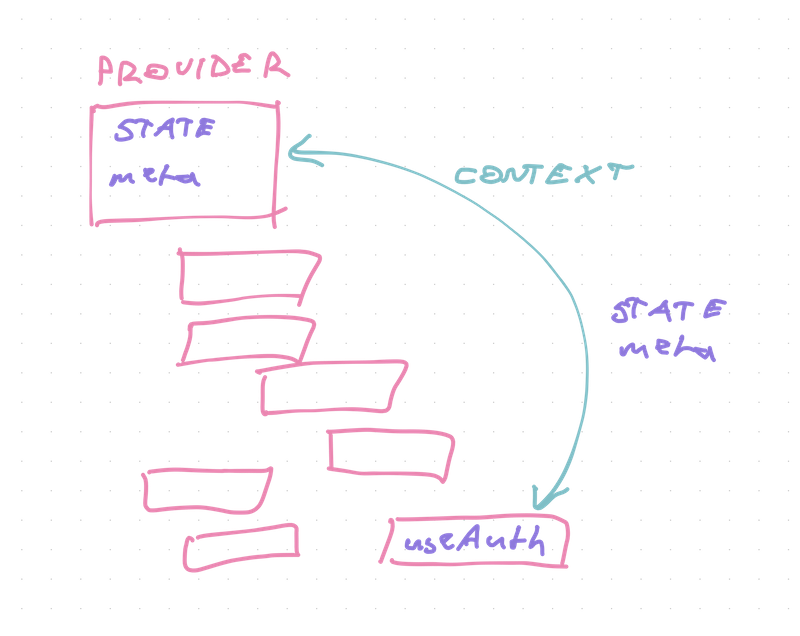 PROVIDER
STATE
meta
CONTEXT
STATE
meta
useAuth